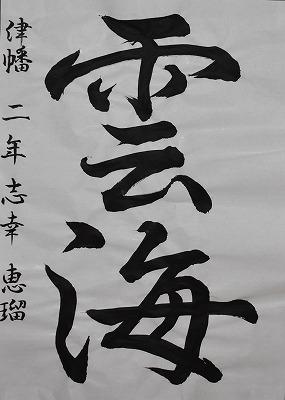 雲海
津幡 二年 志幸 恵瑠